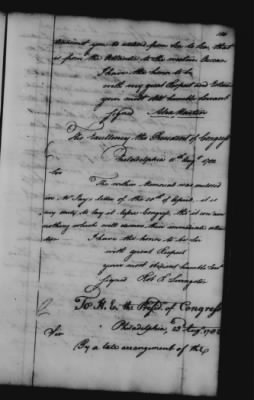 you to extend from Sea to Sea, that
is from the Atlantic to the western Ocean
I have the honor to be
with very great Respect and Esteem
your most obt humble Servant
signed Alexr Martin
His Excellency the President of Congress
Philadelphia Augt 1782
Sir
The within Memorial was enclosed
in Mr Jay's letter of the of April. it is
my duty to lay it before Congress tho' it contains
nothing which will cause their immediate atten
tion I have the honor to be Sir
with great Respect
your most obedient humble Servt
signed Robt R Livingston
To H. E. the Presidt of Congress
Philadelphia, 23d Augt 1782
Sir
By a late arrangement of the